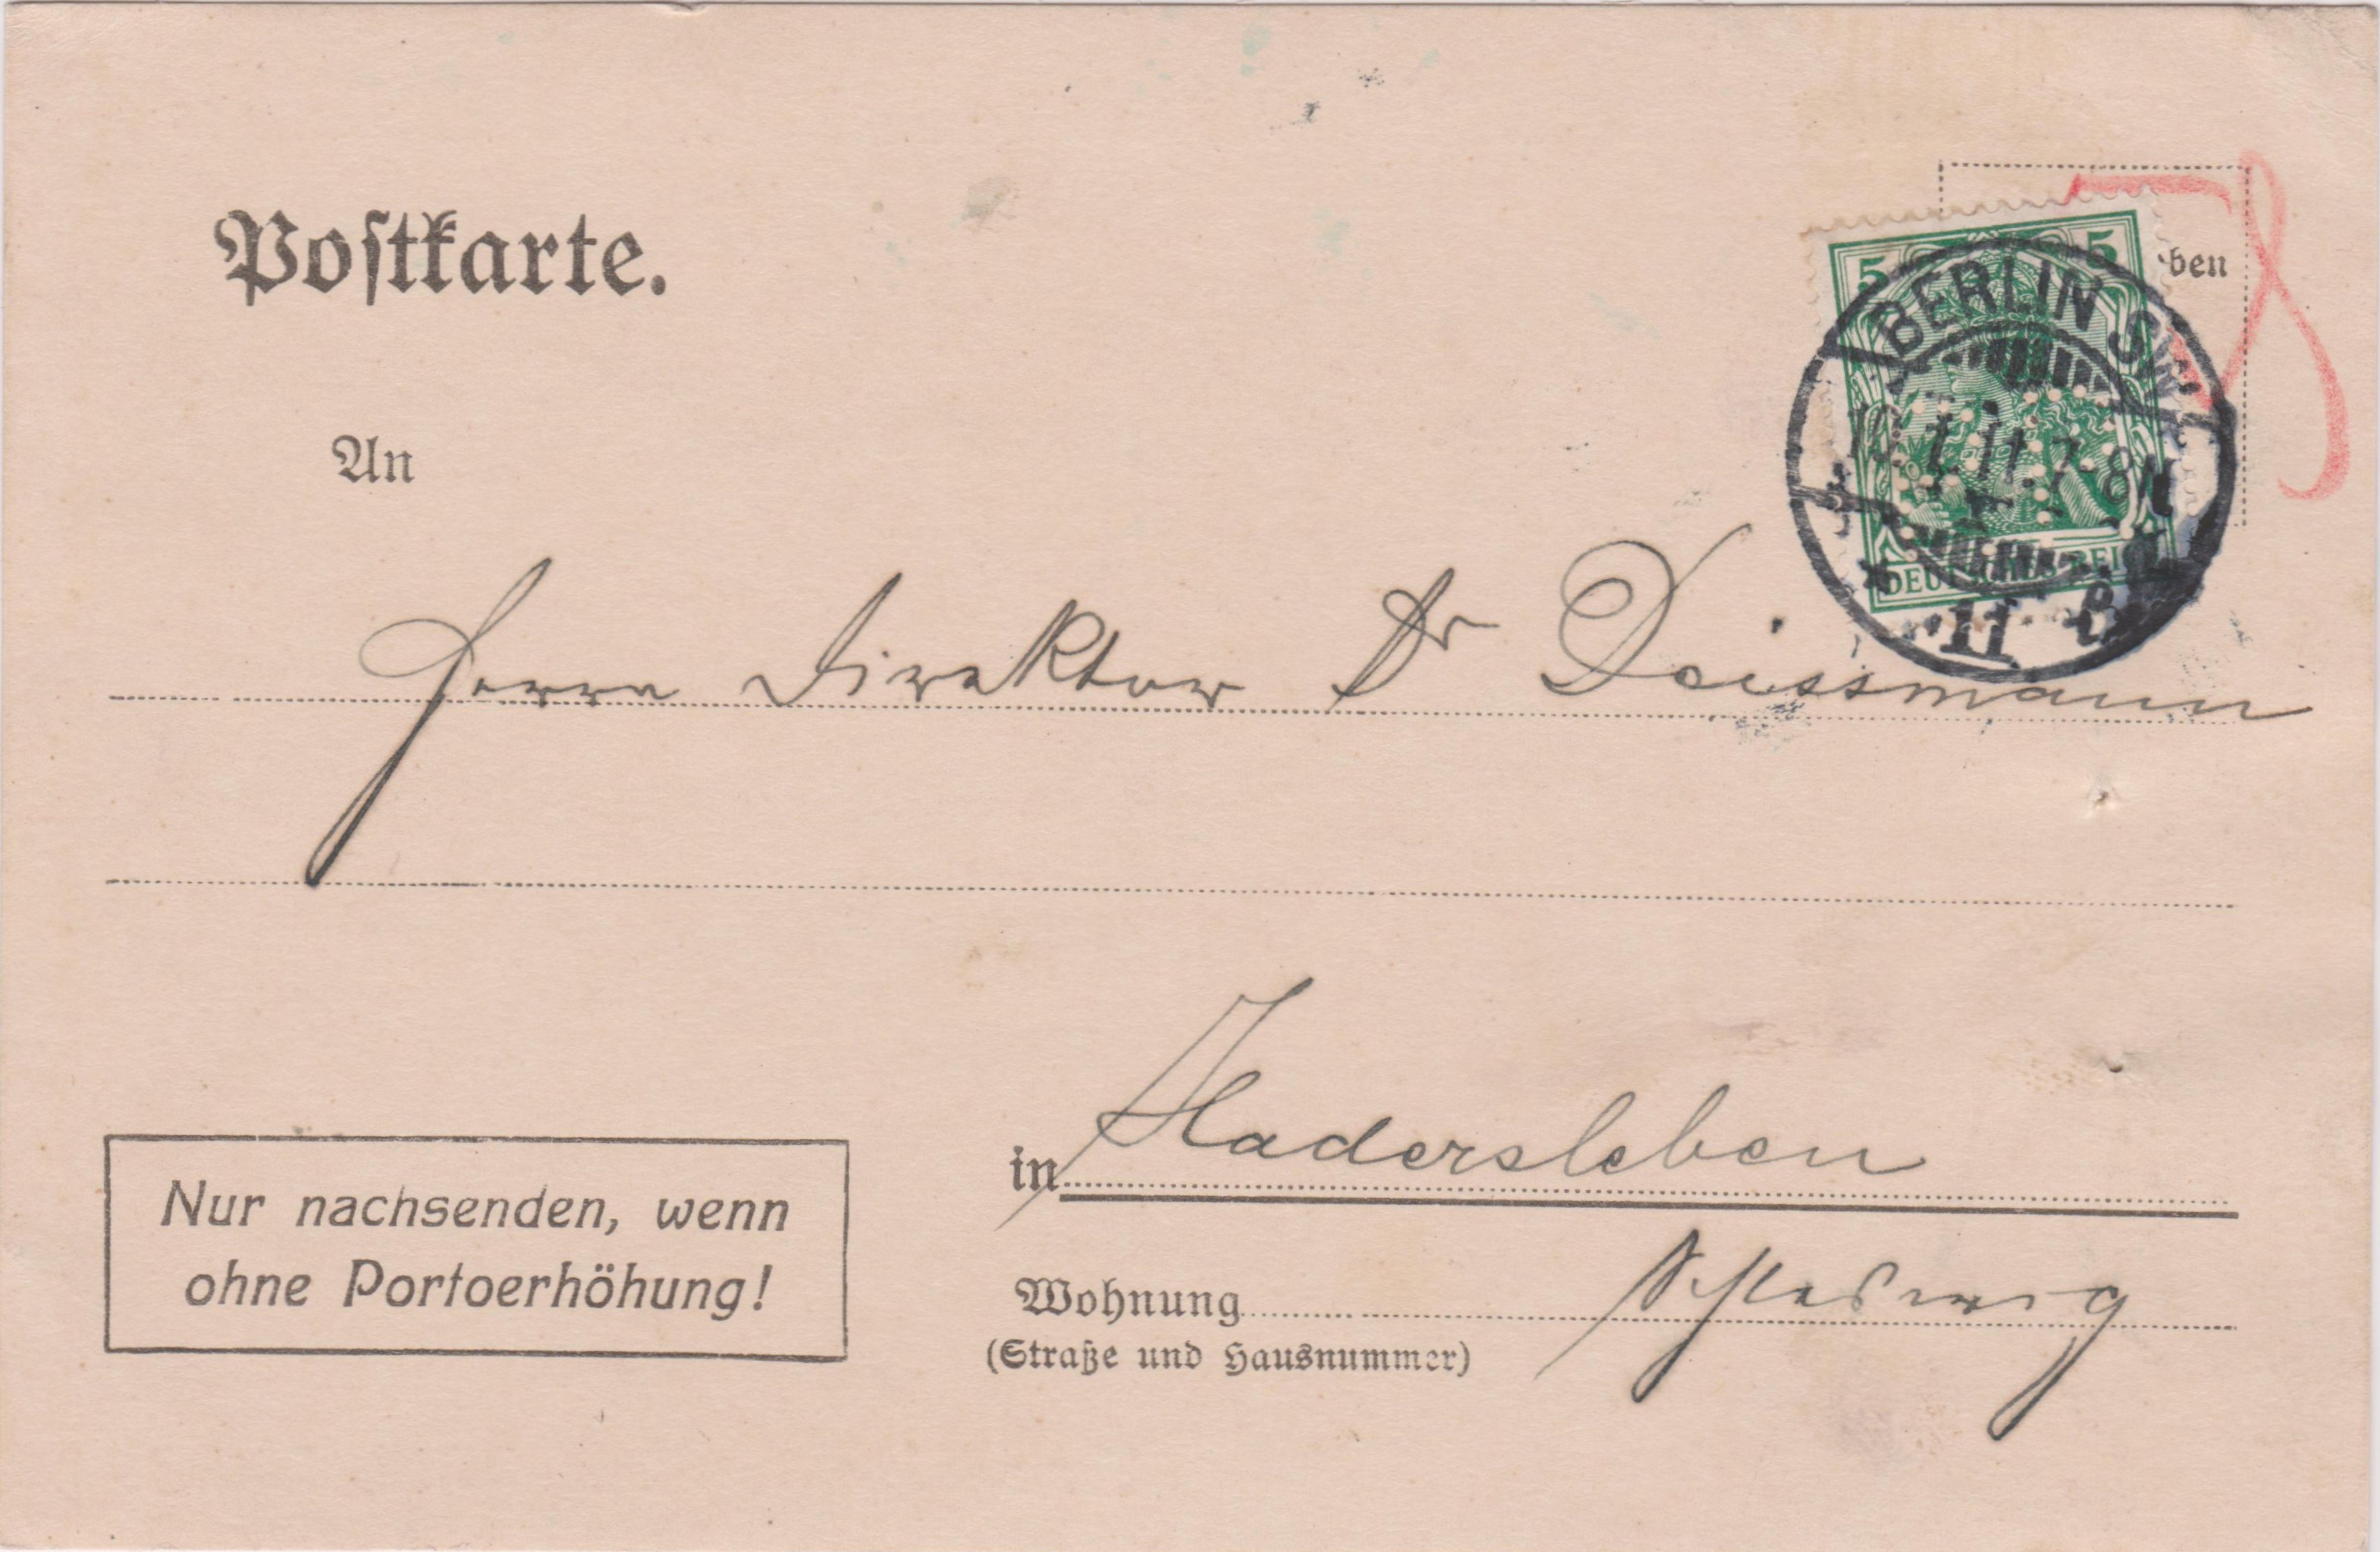 Postkarte.
5 5
ben
BERLIN SW
10.1.11.7-8N
DEUTSCHES REICH
* 11 g
An
Herrn Direktor Dr Deissmann
in Hadersleben
Schleswig
Nur nachsenden, wenn
ohne Portoerhöhung!
Wohnung
(Straße und Hausnummer)